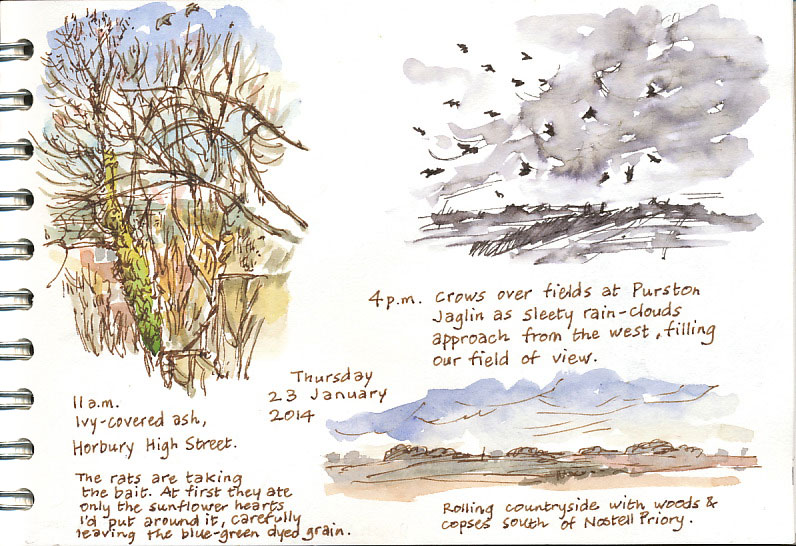 11 a.m.
Ivy-covered ash,
Horbury High Street.
The rats are taking
the bait. At first they ate
only the sunflower hearts
I'd put around it, carefully
leaving the blue-green dyed grain.
Thursday
23 January
2014
4 p.m. Crows over fields at Purston
Jaglin as sleety rain-clouds
approach from the west, filling
our field of view.
Rolling countryside with woods &
copses south of Nostell Priory.